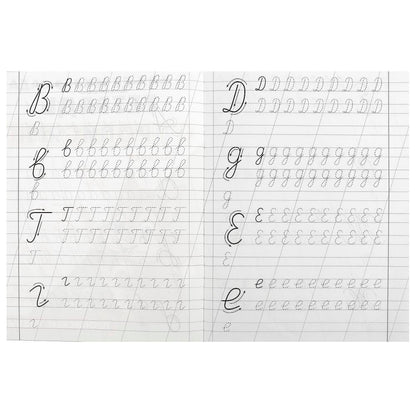 В В В В В В В В В В В В
В В В В В В В В В В В
В
в в в в в в в в в в в в
в в в в в в в в в в в
в
Г Г Г Г Г Г Г Г Г Г Г
Г Г Г Г Г Г Г Г Г Г
Г
г г г г г г г г г г г г
г г г г г г г г г г г
г
Д Д Д Д Д Д Д Д Д Д Д
Д Д Д Д Д Д Д Д Д Д
Д
д д д д д д д д д д д д
д д д д д д д д д д д
д
Е Е Е Е Е Е Е Е Е Е Е
Е Е Е Е Е Е Е Е Е Е
Е
е е е е е е е е е е е
е е е е е е е е е е
е